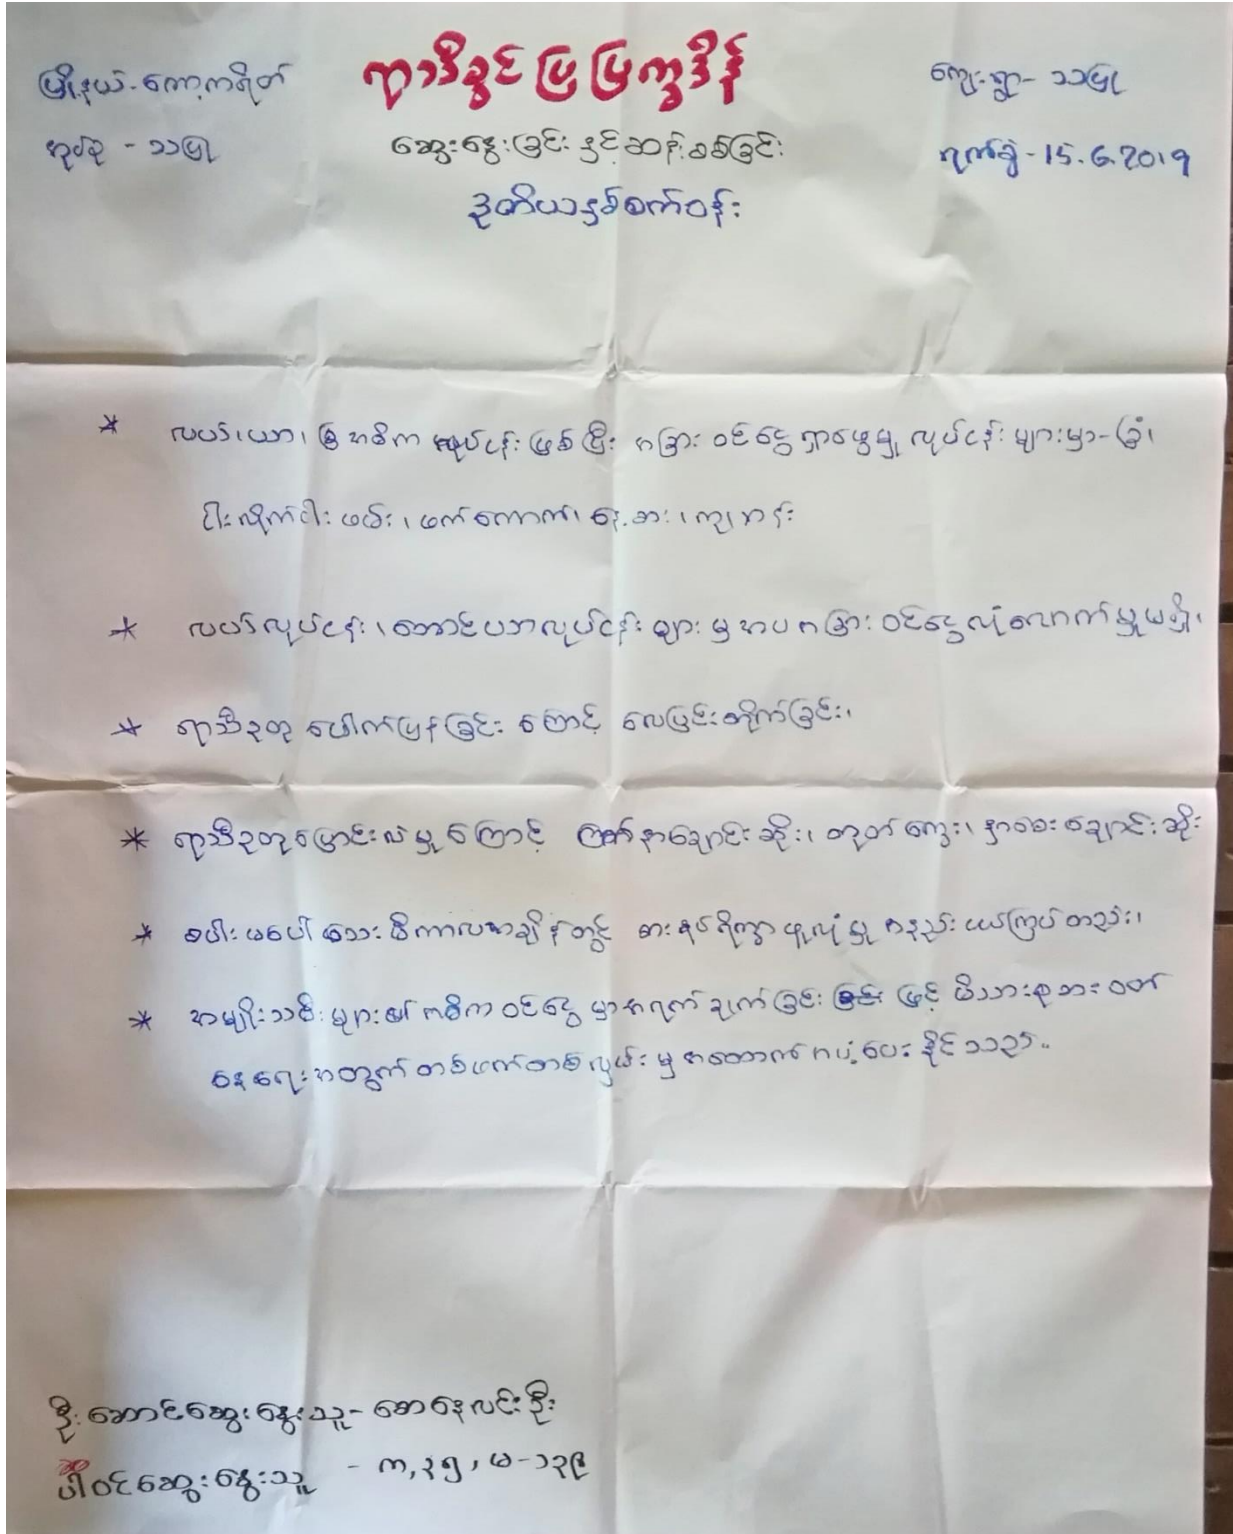 မြို့နယ် - ကော့ကရိတ်
ရာသီခွင်ပြမြက္ခဒိန်
ကျေးရွာ - သမြု
အုပ်စု - သမြု
ဆွေးနွေးခြင်း နှင့် ဆန်းစစ်ခြင်း
ရက်စွဲ - 15.6.2019
ဒုတိယနှစ်စက်ဝန်း
* လယ်၊ယာ၊ခြံ အဓိက လုပ်ငန်း ဖြစ်ပြီး အခြား ဝင်ငွေ ရှာဖွေမှု လုပ်ငန်း များမှာ - ခြံ၊
ငါးလိုက်ငါးဖမ်း၊ ဖက်ကောက်၊ နေ့စား၊ ကျပန်း
* လယ်လုပ်ငန်း၊ တောင်ယာလုပ်ငန်း များ မှ အပ အခြား ဝင်ငွေ လုံလောက်မှု မရှိ၊
* ရာသီဥတု ဖေါက်ပြန်ခြင်း ကြောင့် လေပြင်းတိုက်ခြင်း၊
* ရာသီဥတုပြောင်းလဲမှု ကြောင့် နှာချောင်းဆိုး၊ တုတ်ကွေး၊ နှာစေးချောင်းဆိုး
* စပါး မပေါ်သေးမီကာလအချိန်တွင် စားနပ်ရိက္ခာ ဖူလုံမှု အနည်းငယ်ကြပ်တည်း၊
* အမျိုးသမီး များ၏ အဓိက ဝင်ငွေ မှာ အရက်ချက်ခြင်း ဖြင့် မိသားစု စား ဝတ်
နေရေး အတွက် တစ်ဖက်တစ်လှမ်း မှ အထောက်အပံ့ပေးနိုင်သည်။
ဦးဆောင်ဆွေးနွေးသူ - စောနေလင်းဦး
ပါဝင်ဆွေးနွေးသူ - က, ၃၅၊ မ - ၁၃၉